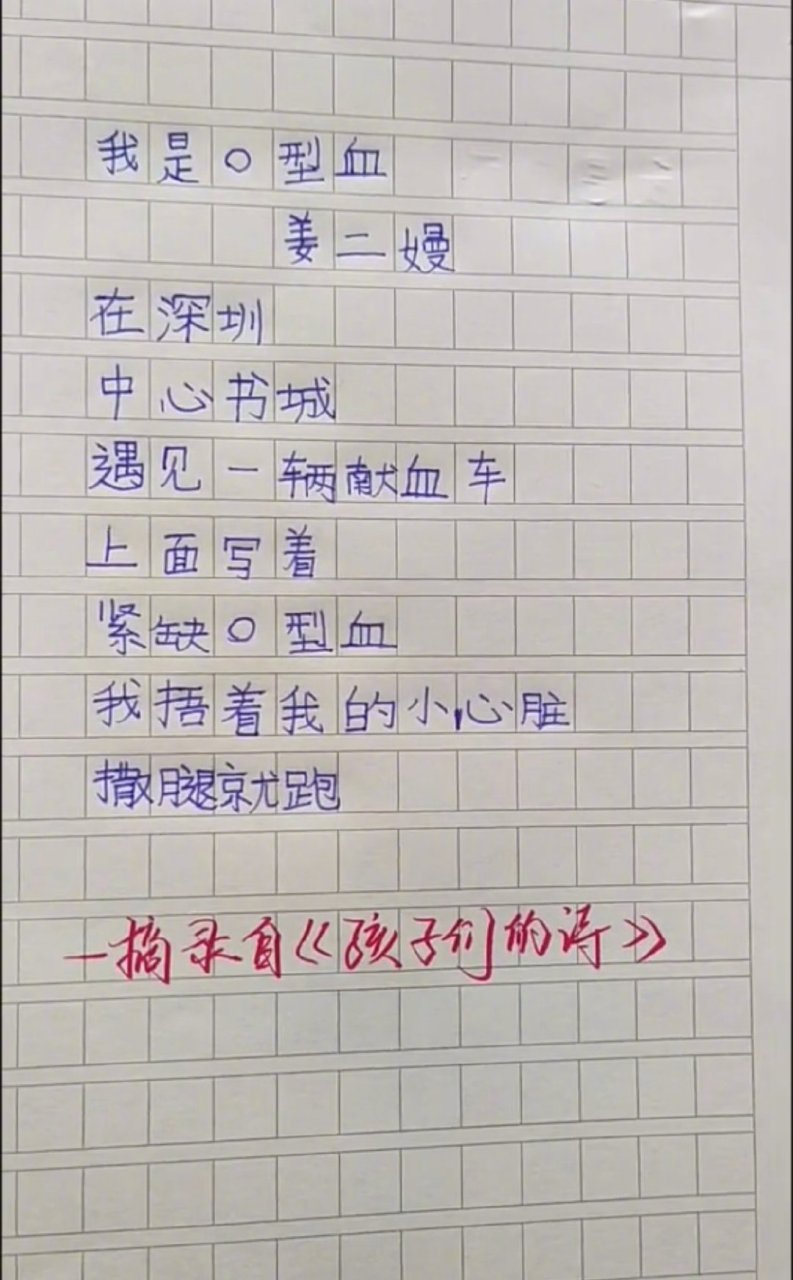 我是O型血
姜二嫚
在深圳
中心书城
遇见一辆献血车
上面写着
紧缺O型血
我捂着我的小心脏
撒腿就跑
—摘录自《孩子们的诗》